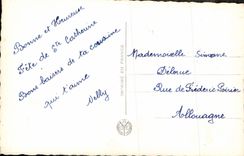 Bonne et Heureuse
Fête de Ste Catherine
Bons baisers de ta cousine
qui t'aime
Nelly
Mademoiselle Simone
Délorue
Rue de Frédéric
Allouagne